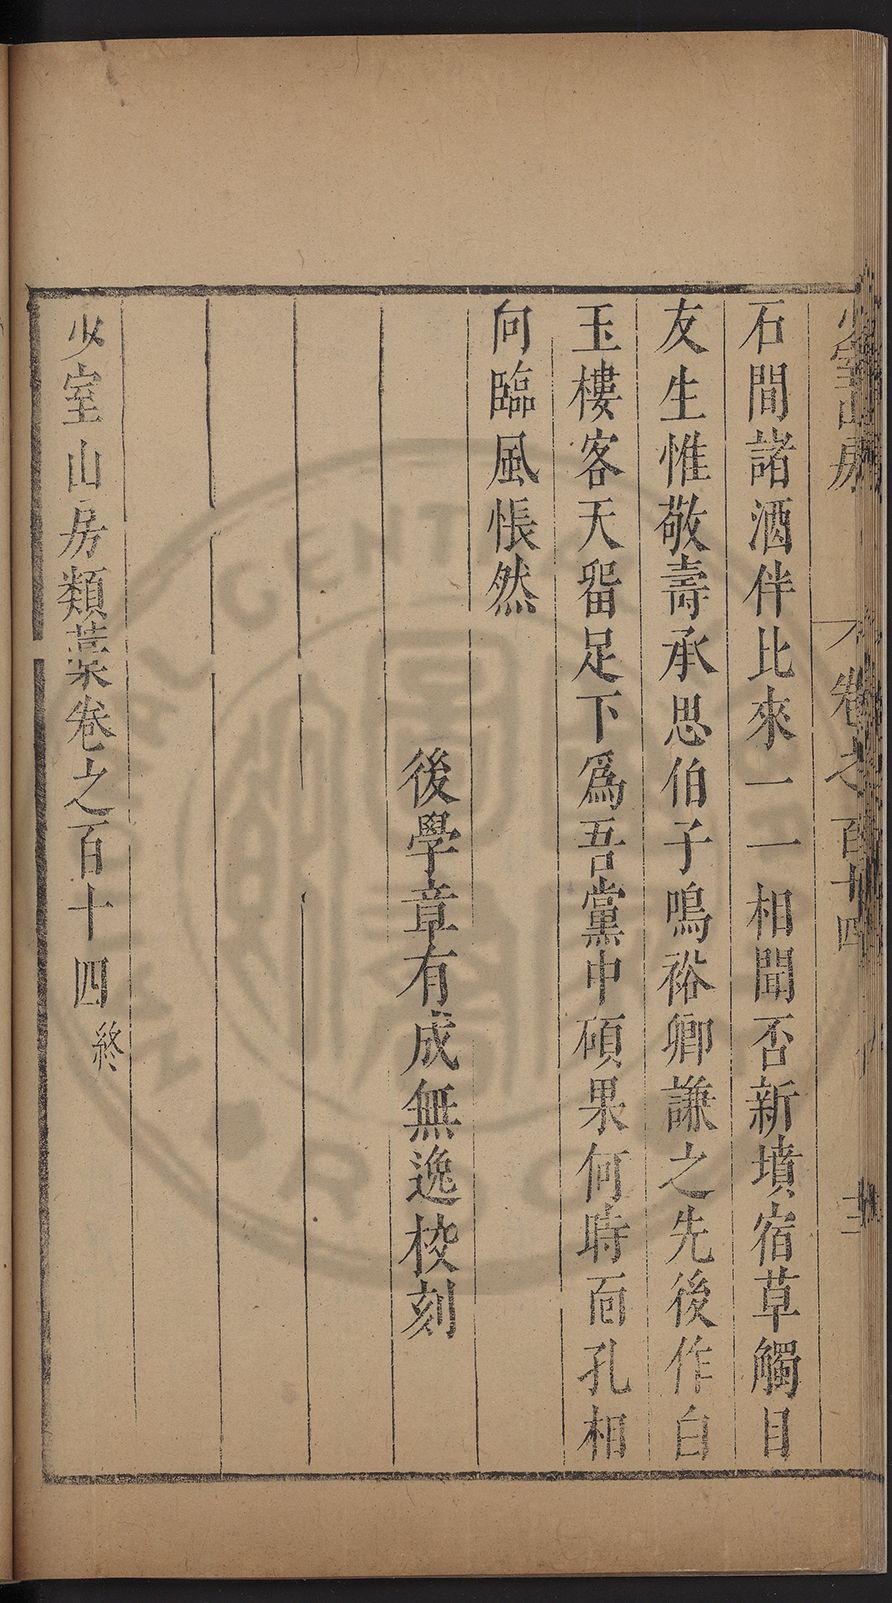 少室山房　卷之百十四
石間諸酒伴比來一一相聞否新墳宿草觸目
友生惟敬壽承思伯子鳴裕卿謙之先後作白
玉樓客天畱足下爲吾黨中碩果何時面孔相
向臨風悵然
後學章有成無逸校刻
少室山房類藁卷之百十四終